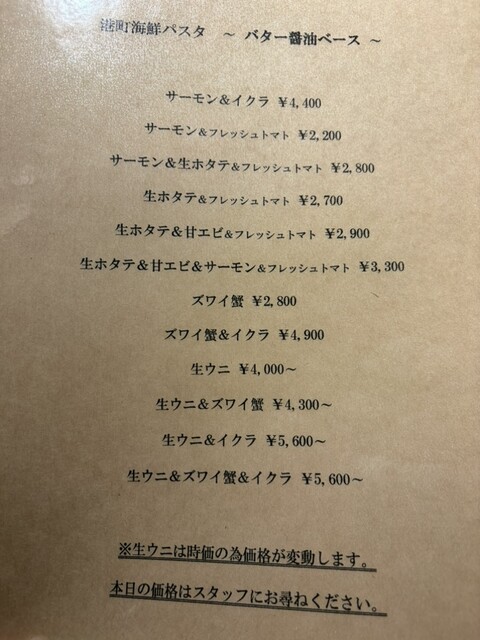 港町海鮮パスタ ～ バター醤油ベース ～
サーモン&イクラ ¥4,400
サーモン&フレッシュトマト ¥2,200
サーモン&生ホタテ&フレッシュトマト ¥2,800
生ホタテ&フレッシュトマト ¥2,700
生ホタテ&甘エビ&フレッシュトマト ¥2,900
生ホタテ&甘エビ&サーモン&フレッシュトマト ¥3,300
ズワイ蟹 ¥2,800
ズワイ蟹&イクラ ¥4,900
生ウニ ¥4,000～
生ウニ&ズワイ蟹 ¥4,300～
生ウニ&イクラ ¥5,600～
生ウニ&ズワイ蟹&イクラ ¥5,600～
※生ウニは時価の為価格が変動します。
本日の価格はスタッフにお尋ねください。